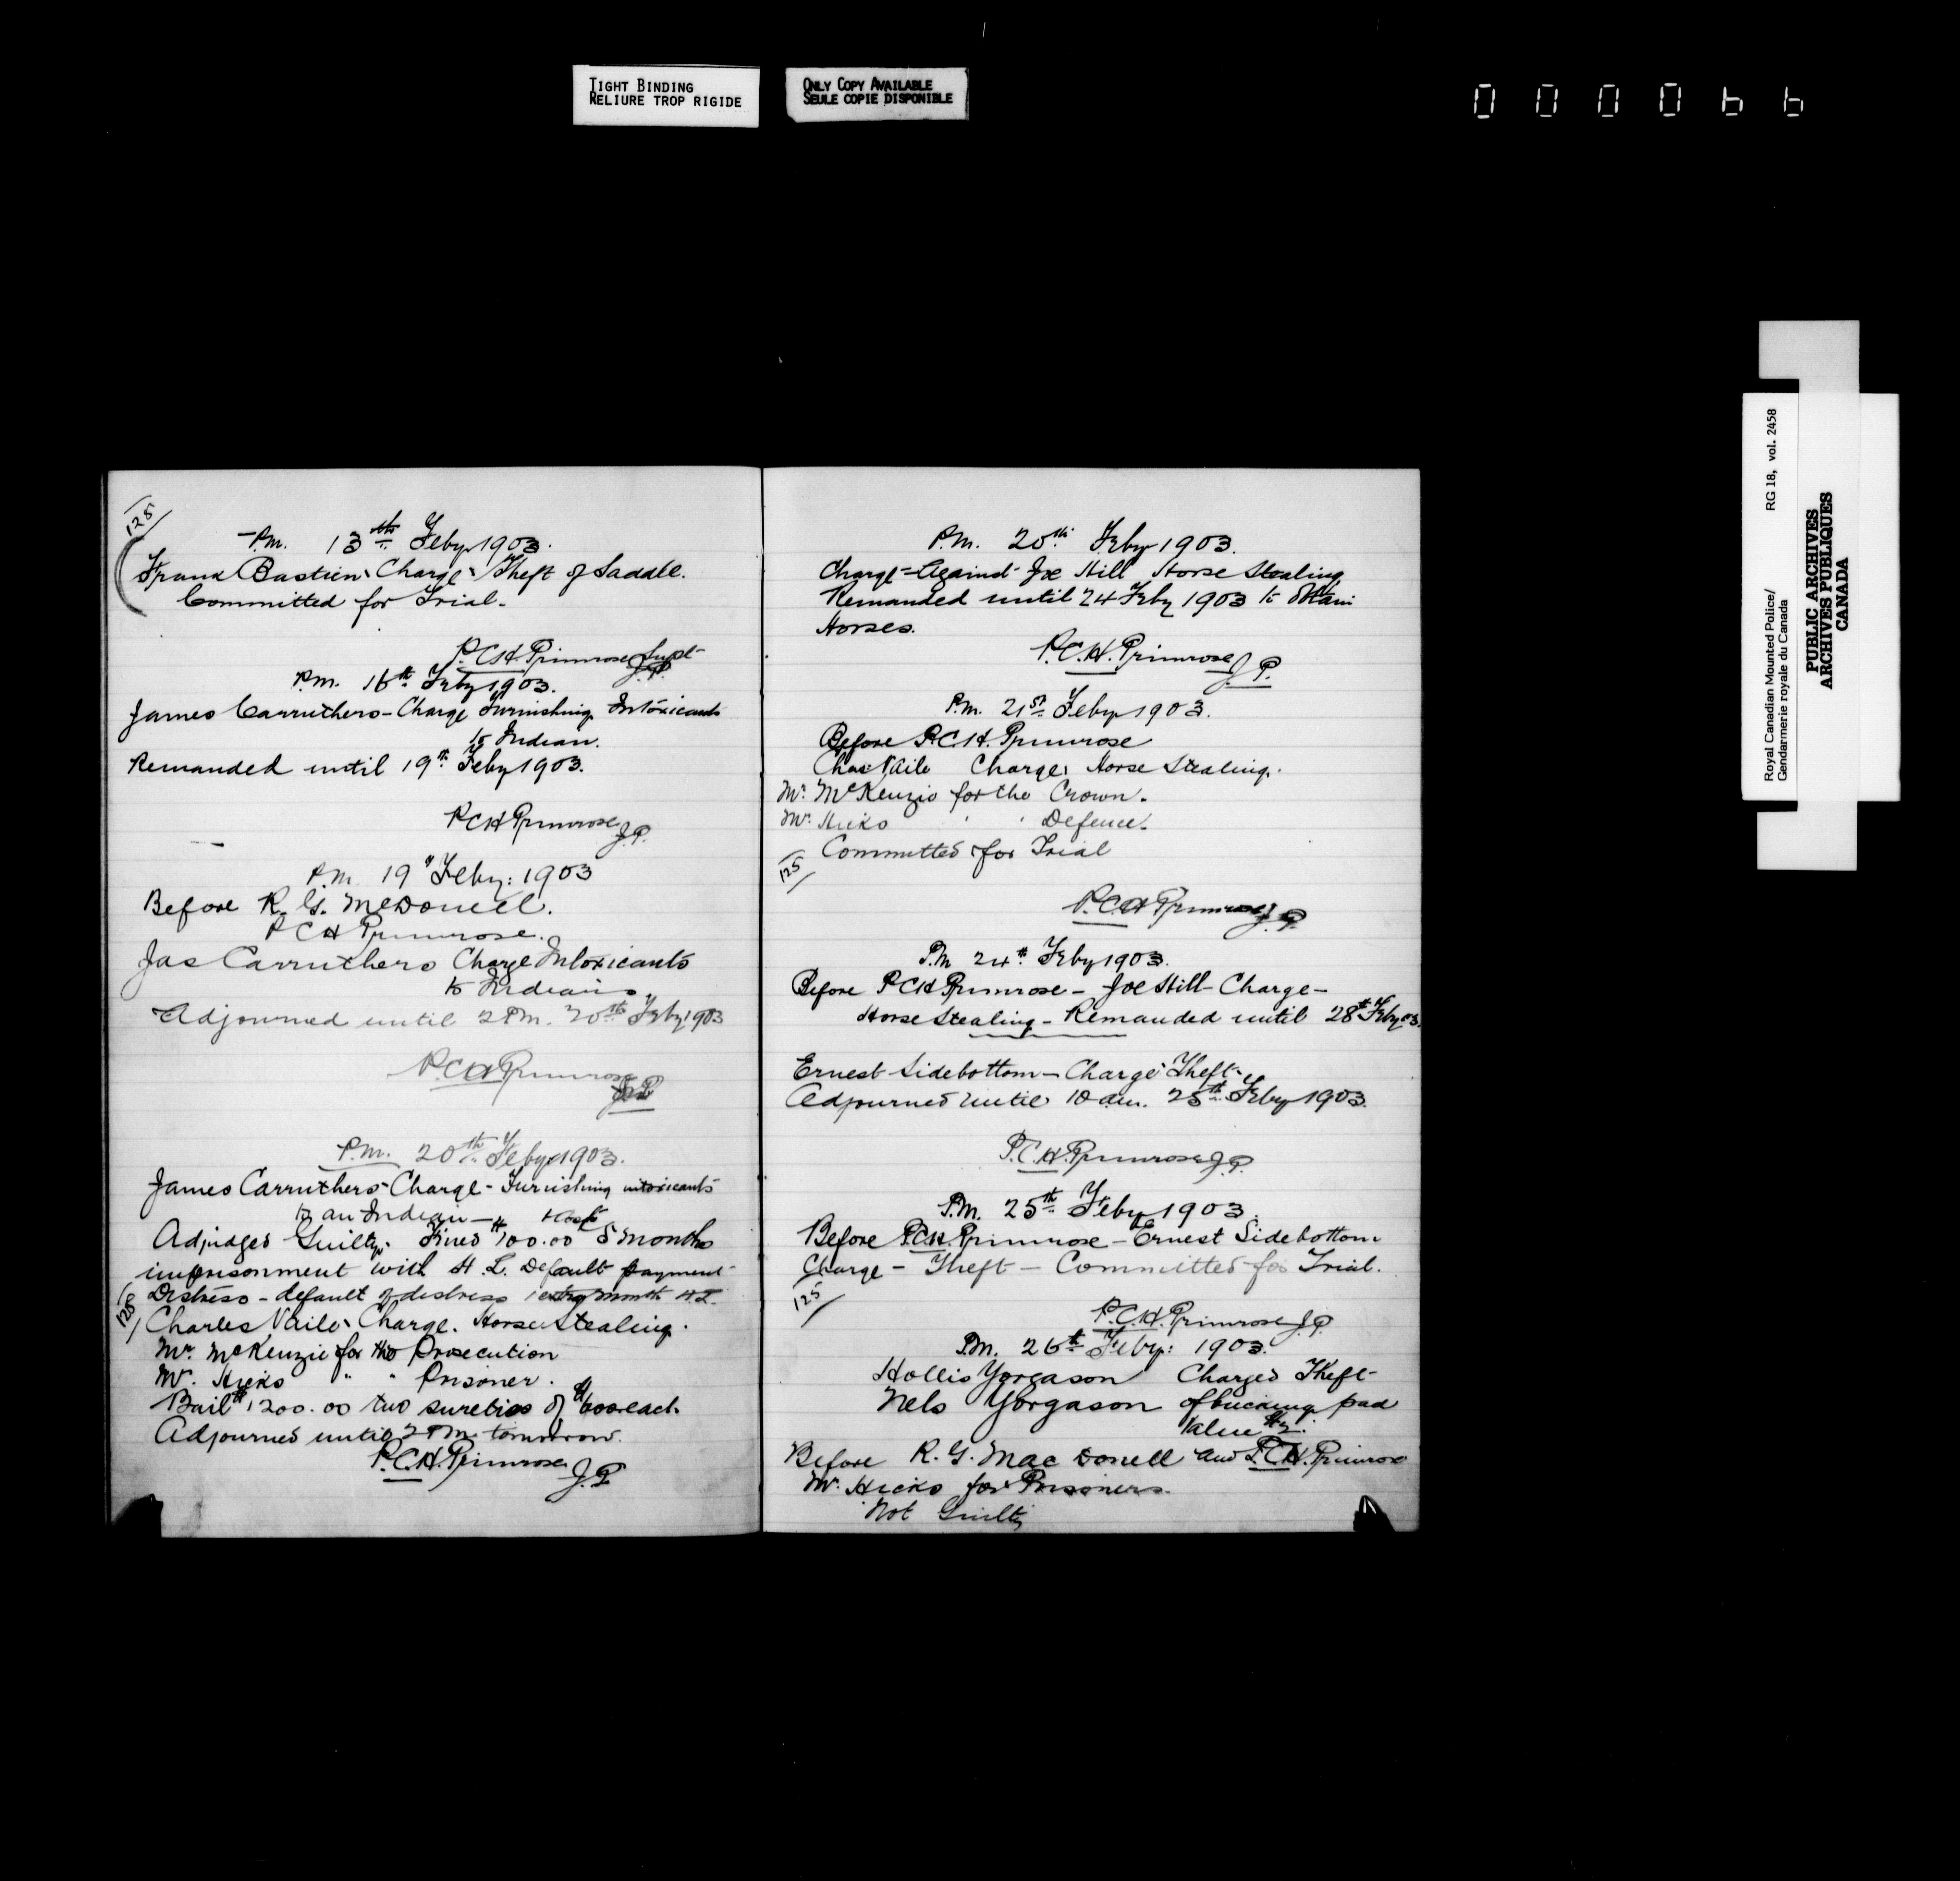 TIGHT BINDING
RELIURE TROP RIGIDE
ONLY COPY AVAILABLE
SEULE COPIE DISPONIBLE
0 0 0 0 6 6
125
P.M. 13th Feby 1903.
Frank Bastien, Charge, Theft of Saddle.
Committed for Trial.
P.C.H. Primrose Supt
J.P.
P.M. 16th Feby 1903.
James Carruthers - Charge Furnishing Intoxicants
to Indian.
Remanded until 19th Feby 1903.
P C H Primrose
J.P.
P.M. 19th Feby: 1903
Before R. G. McDonell.
P C H Primrose.
Jas Carruthers Charge Intoxicants
to Indians.
Adjourned until 2 PM. 20th Feby 1903
P.C.H Primrose
J.P.
P.M. 20th Feby 1903.
James Carruthers - Charge - Furnishing intoxicants
to an Indian -
Adjudged Guilty. Fined $100.00 & costs 5 months
imprisonment with H. L. Default payment
Distress - default of distress 1 extra month H.L.
125
Charles Vaile, Charge. Horse Stealing.
Mr. McKenzie for the Prosecution
Mr. Hicks " " Prisoner.
Bail $1200.00 two sureties of $600 each.
Adjourned until 2 P.M. tomorrow.
P.C.H. Primrose J.P.
P.M. 20th Feby 1903.
Charge - Against Joe Hill Horse Stealing
Remanded until 24 Feby 1903 to obtain
Horses.
P.C.H. Primrose J.P.
P.M. 21st Feby 1903.
Before P.C.H. Primrose
Chas Vaile Charge, Horse Stealing.
Mr. McKenzie for the Crown.
Mr. Hicks ' ' Defence.
Committed for Trial
125
P.C.H Primrose J.P.
P.M 24th Feby 1903.
Before P C H Primrose - Joe Hill - Charge -
Horse Stealing - Remanded until 28th Feby 03.
Ernest Sidebottom - Charge Theft.
Adjourned until 10 am. 25th Feby 1903.
P.C.H. Primrose J.P.
P.M. 25th Feby 1903.
Before P.C.H. Primrose - Ernest Sidebottom
Charge - Theft - Committed for Trial.
125
P.C.H. Primrose J.P.
P.M. 26th Feby: 1903.
Hollis Yorgason Charged Theft
Nels Yorgason of bucking pad
Value $2.
Before R. G. MacDonell and P.C.H. Primrose
Mr. Hicks for Prisoners.
Not Guilty
Royal Canadian Mounted Police/ RG 18, vol. 2458
Gendarmerie royale du Canada
PUBLIC ARCHIVES
ARCHIVES PUBLIQUES
CANADA